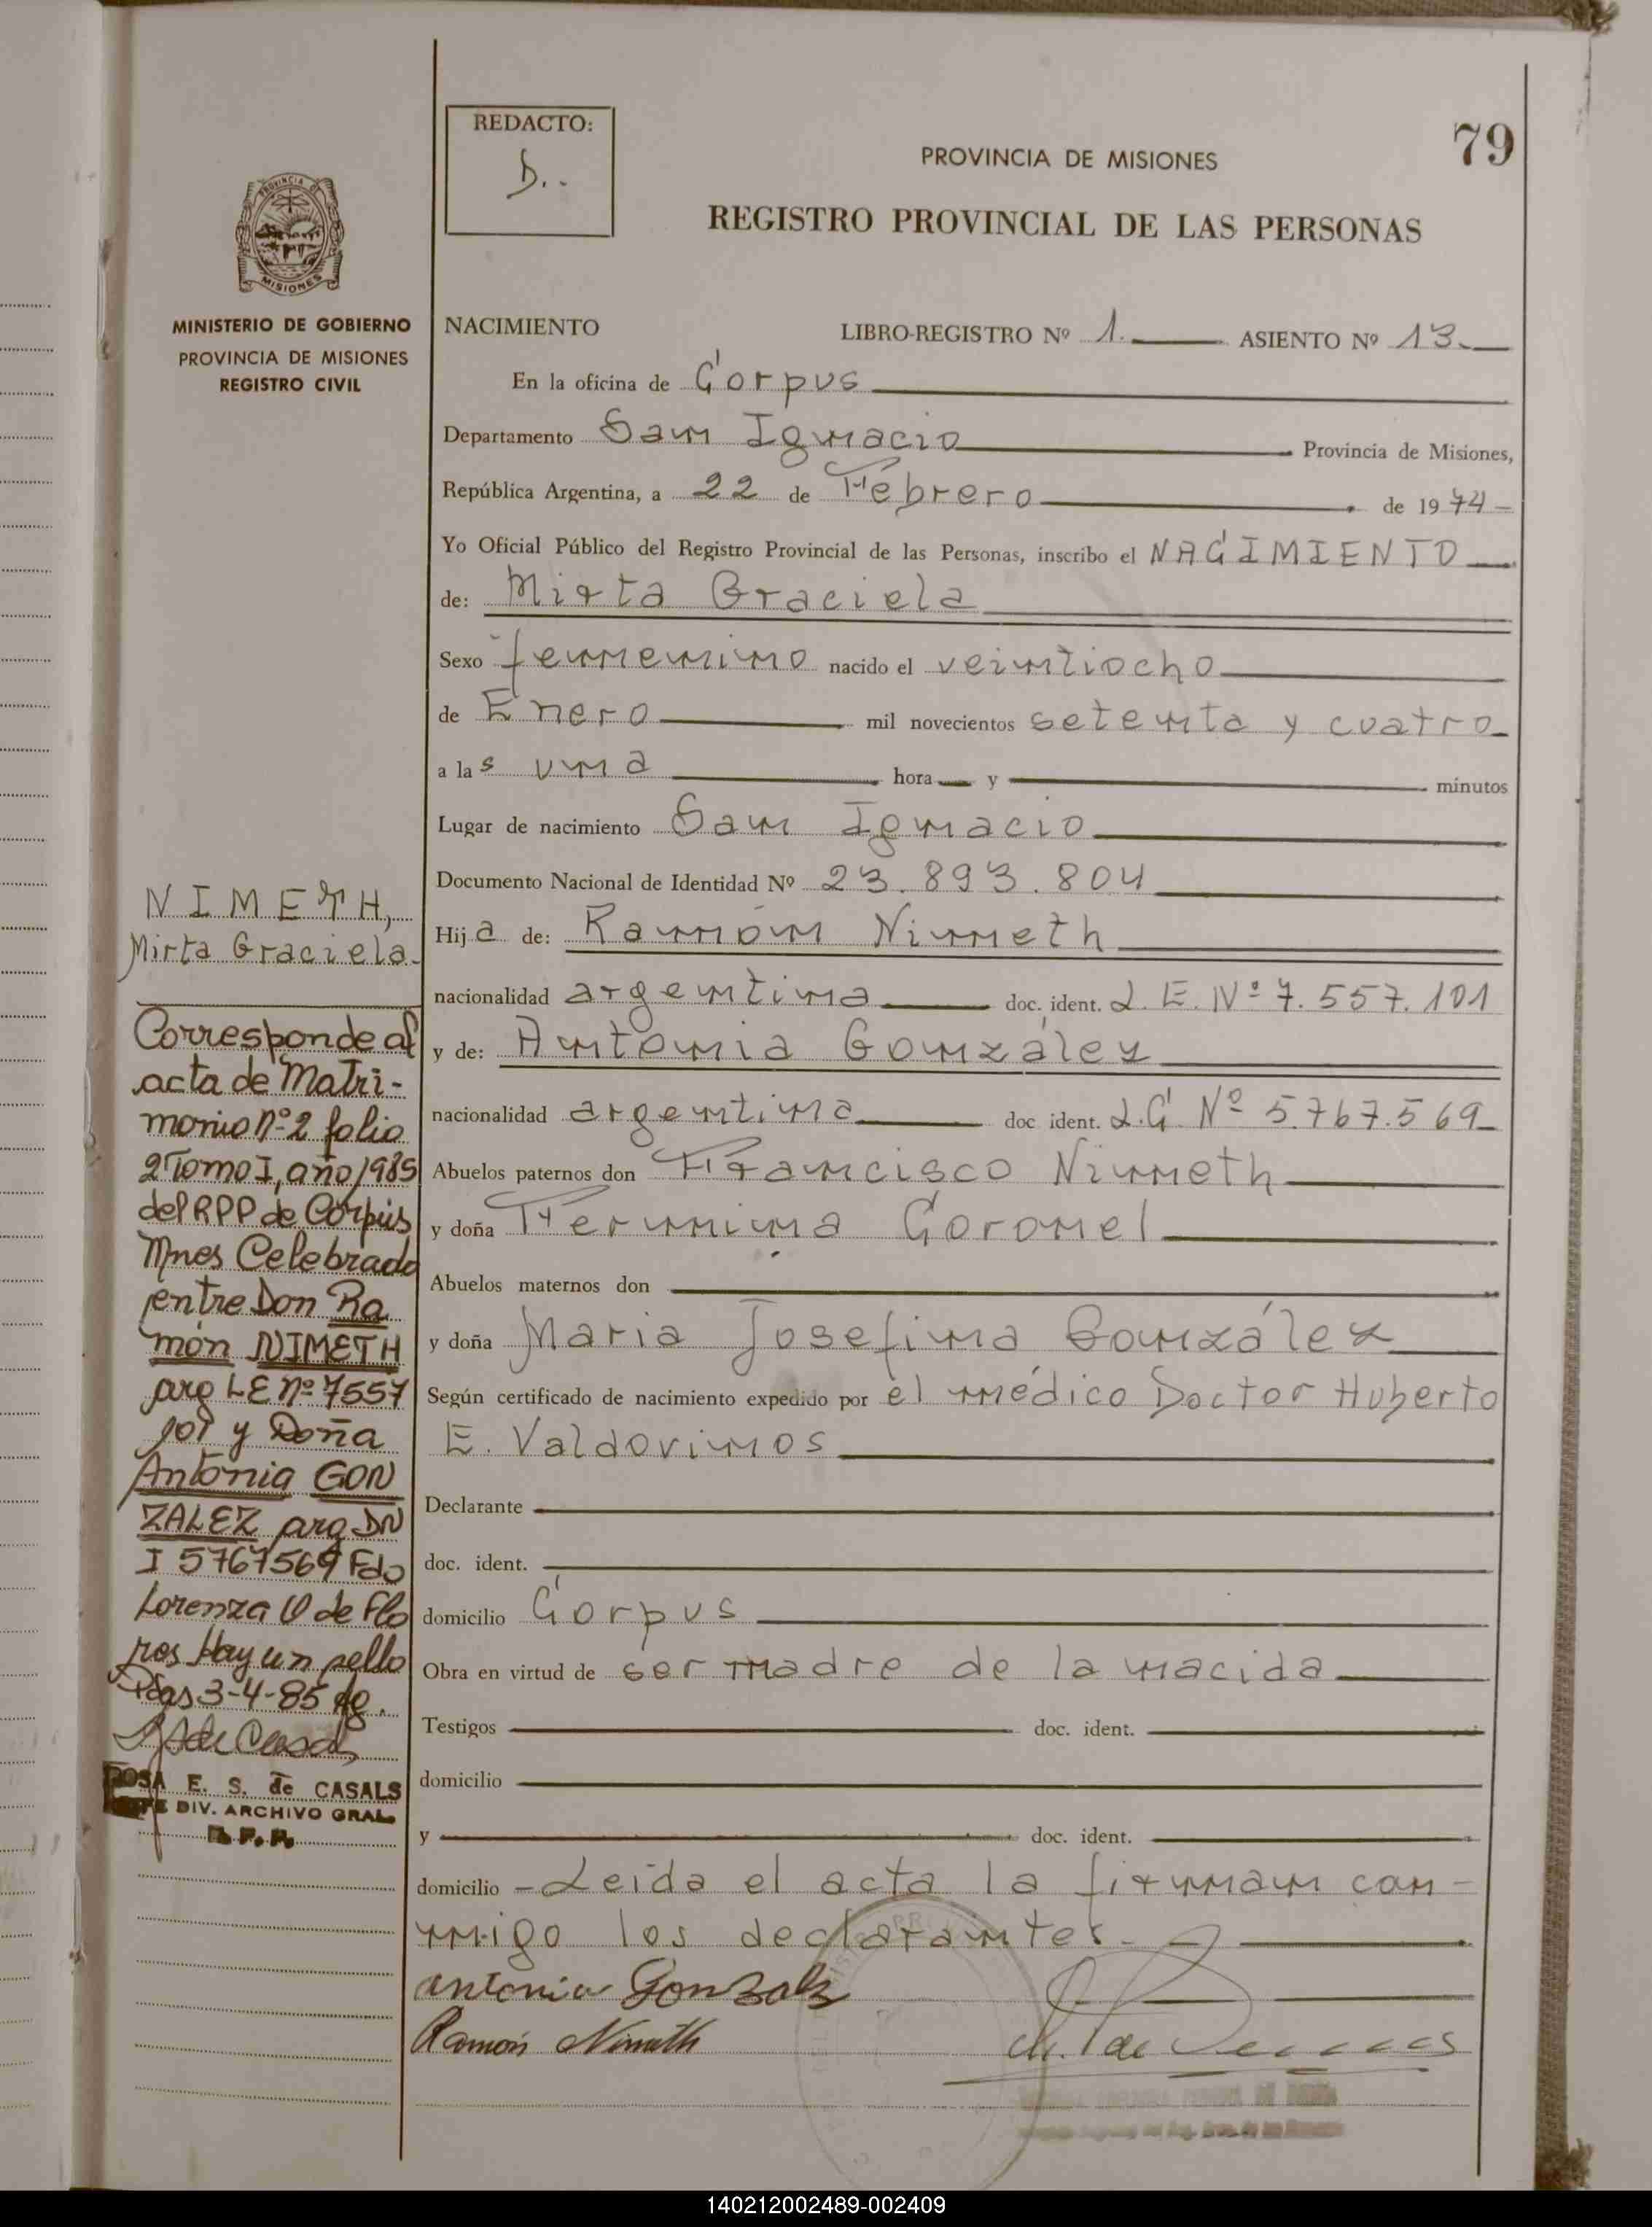 REDACTO:
D..
PROVINCIA DE MISIONES
79
REGISTRO PROVINCIAL DE LAS PERSONAS
PROVINCIA DE
MISIONES
MINISTERIO DE GOBIERNO
PROVINCIA DE MISIONES
REGISTRO CIVIL
NACIMIENTO LIBRO-REGISTRO Nº 1. ASIENTO Nº 13.
En la oficina de Corpus
Departamento San Ignacio Provincia de Misiones,
República Argentina, a 22 de Febrero de 1974
Yo Oficial Público del Registro Provincial de las Personas, inscribo el NACIMIENTO
de: Mirta Graciela
Sexo femenino nacido el veintiocho
de Enero mil novecientos setenta y cuatro
a las una hora y minutos
Lugar de nacimiento San Ignacio
Documento Nacional de Identidad Nº 23.893.804
Hija de: Ramón Nimeth
nacionalidad argentina doc. ident. L.E. Nº 7.557.101
y de: Antonia González
nacionalidad argentina doc ident. L.C. Nº 5.767.569
Abuelos paternos don Francisco Nimeth
y doña Fermina Coronel
Abuelos maternos don
y doña Maria Josefina González
Según certificado de nacimiento expedido por el médico Doctor Huberto
E. Valdovinos
Declarante
doc. ident.
domicilio Corpus
Obra en virtud de ser madre de la nacida
Testigos doc. ident.
domicilio
y doc. ident.
domicilio - Leída el acta la firman con-
migo los declarantes.
Antonia Gonzalz
Ramón Nimeth
NIMETH,
Mirta Graciela.
Corresponde al
acta de Matri-
monio nº 2 folio
2 Tomo I, año 1985
del RPP de Corpus
Mnes Celebrado
entre Don Ra
món NIMETH
arg LE nº 7557
101 y Doña
Antonia GON
ZALEZ arg DN
I 5767569 Fdo
Lorenza V de Flo
res Hay un sello
Pdas 3-4-85
ROSA E. S. de CASALS
JEFE DIV. ARCHIVO GRAL.
R.P.P.
140212002489-002409